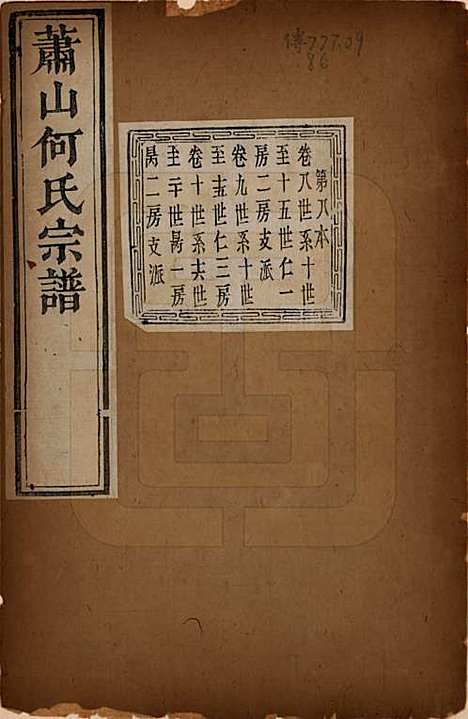 蕭山何氏宗譜
傳777.09
86
第八本
卷八世系十世
至十五世仁一
房二房支派
卷九世系十世
至十五世仁三房
卷十世系十六世
至二十世昺一房
昺二房支派